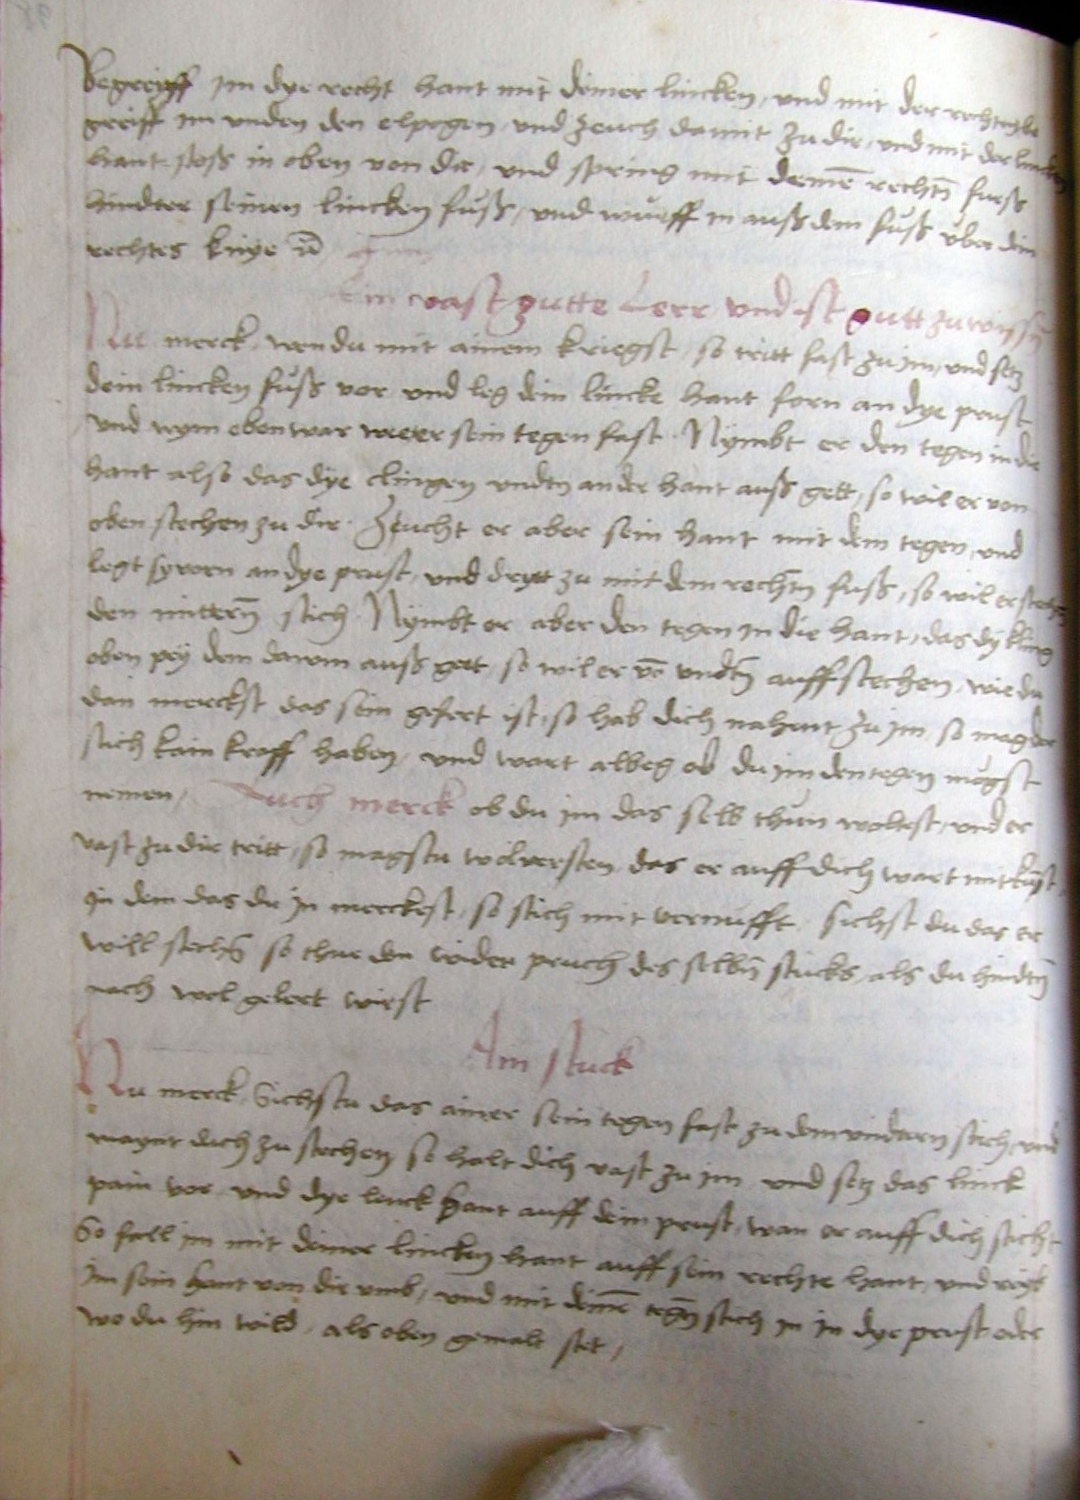 Begreiff im dye recht hant mit deiner lincken, und mit der rechten
greiff im unden den elpogen, und zeuch damit zu dir, und mit der lincken
hant stoss in oben von dir, und spring mit deinē rechtn̄ fuess
hindter seinen lincken fuss, und wurff in auss dem fuss über dein
rechtes knye
Ein vast gutte Lere und ist gutt zu wissn̄
Nu merck, wen du mit ainem kriegst, so tritt fast zu im, und setz
dein lincken fuss vor und leg dein lincke hant forn an dye prust
und nym eben war weer sein tegen fast. Nymbt er den tegen in die
hant also das dye clingen undtn an der hant auss gett, so wil er von
oben stechen zu dir. Zeucht er aber sein hant mit dem tegen, und
legt sy vorn an dye prust, und drytt zu mit dem rechtn̄ fuss, so wil er stechn̄
den mittern̄ stich. Nymbt er aber den tegen in die hant, das dy kling
oben pey dem dawm auss gett, so wil er vō undtn̄ auff stechen, wie du
dan merckst das sein gefert ist, so hab dich nahent zu im, so mag der
stich kain krafft haben, und wart albeg ob du im den tegen mügst
nemen, Auch merck ob du im das selb thun woltest, und er
vast zu dir tritt, so magstu wol versten, das er auff dich wart mit kunst,
in dem das du in merckest, so stich mit vernufft. Sichst du das er
will stechn̄ so thue den wider pruch des selbn̄ stucks, als du hindtn̄
nach wol gelert wirst
Ain stuck
Nu merck, Sichstu das ainer sein tegen fast zu dem undern stich, und
maynt dich zu stechen, so halt dich vast zu im und setz das linck
pain vor, und dye linck hant auff dein prust, wan er auff dich sticht
So fall im mit deiner lincken hant auff sein rechte hant, und reib
im sein hant von dir umb, und mit deinē tegn̄ stich in in dye prust oder
wo du hin wild, als oben gemalt stet,